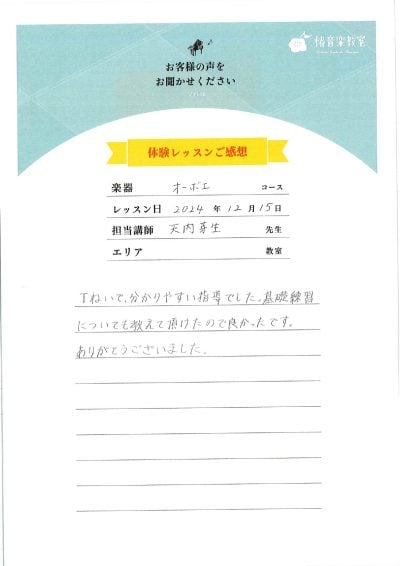 椿音楽教室
お客様の声を
お聞かせください
体験レッスンご感想
楽器 オーボエ コース
レッスン日 2024 年 12 月 15 日
担当講師 天内芽生 先生
エリア 教室
丁ねいで、分かりやすい指導でした。基礎練習
についても教えて頂けたので良かったです。
ありがとうございました。